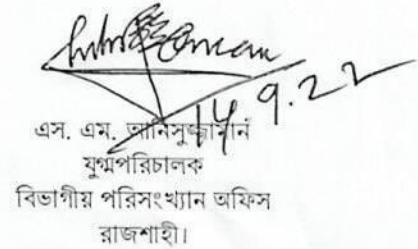 14.9.22
এস. এম. আনিসুজ্জামান
যুগ্মপরিচালক
বিভাগীয় পরিসংখ্যান অফিস
রাজশাহী।